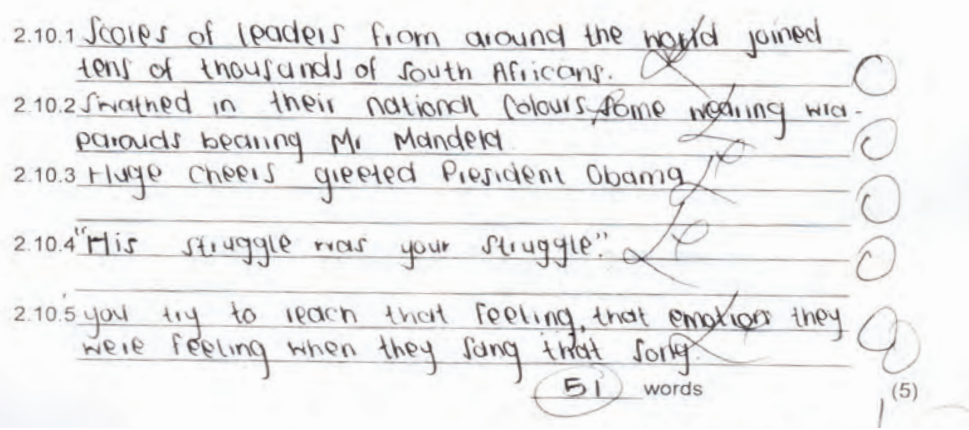 2.10.1 Scores of leaders from around the world joined
tens of thousands of South Africans.
2.10.2 Swathed in their national colours, some wearing wra-
parounds bearing Mr Mandela
2.10.3 Huge cheers greeted President Obama
2.10.4 "His struggle was your struggle".
2.10.5 you try to reach that feeling, that emotion they
were feeling when they sang that song.
51 words (5)